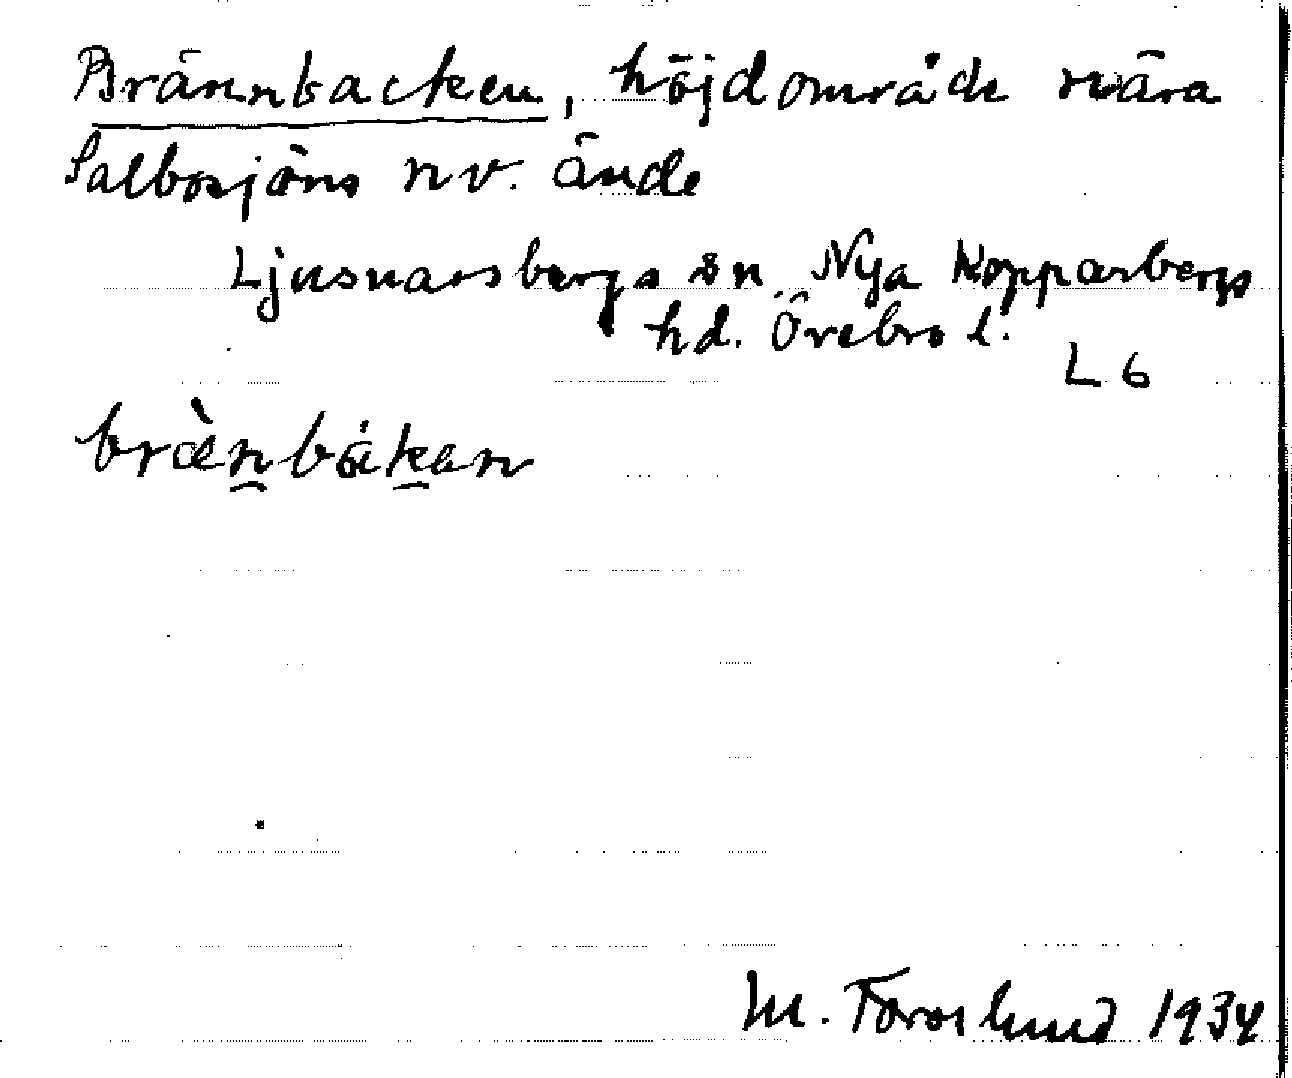 Brännbacken, höjdområde nära
Salbosjöns nv. ände
Ljusnarsbergs sn. Nya Kopparbergs
hd. Örebro l.
L 6
bræ̀nbákan
M. Forslund 1934